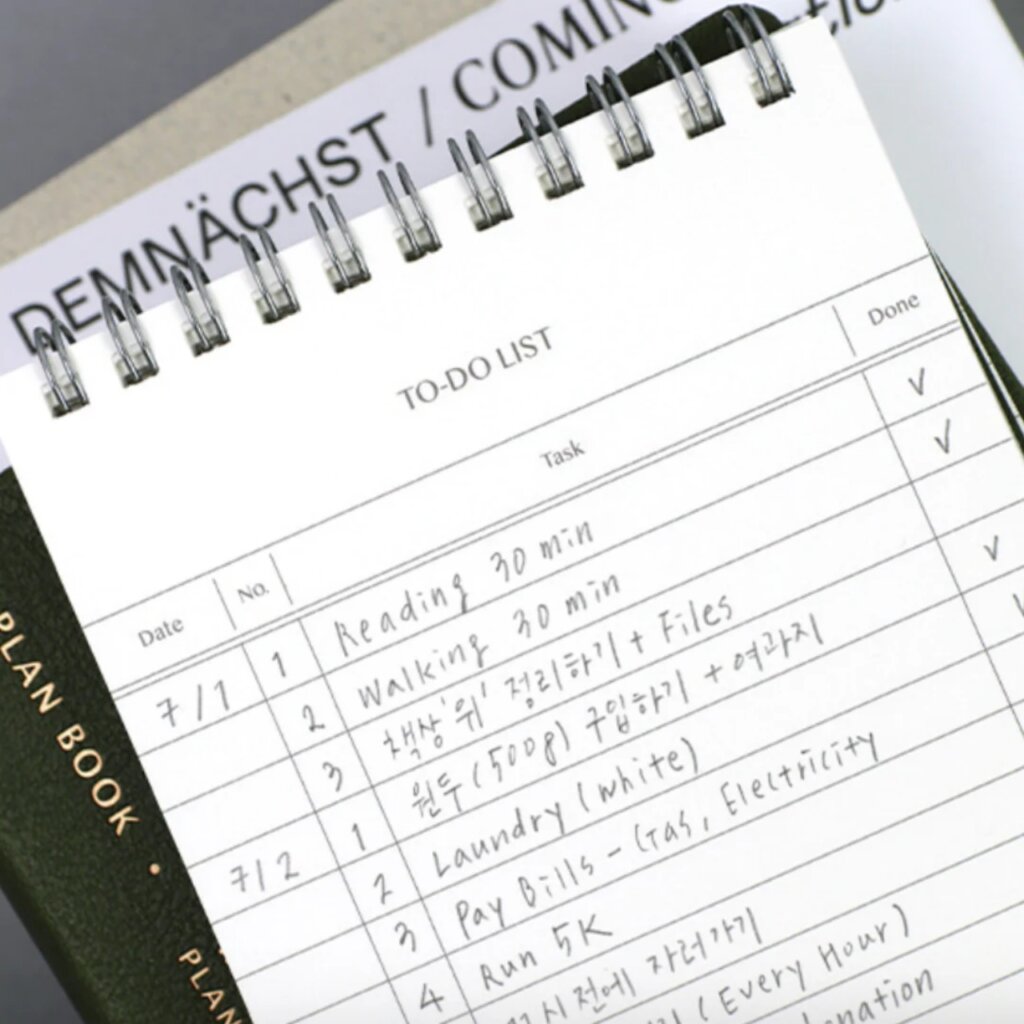 DEMNÄCHST / COMING
TO-DO LIST
Date No. Task Done
7/1 1 Reading 30 min ✓
2 Walking 30 min ✓
3 책상 '위' 정리하기 + Files
7/2 1 원두 (500g) 구입하기 + 여과지 ✓
2 Laundry (White)
3 Pay Bills - Gas, Electricity
4 Run 5K
시 전에 자러가기
(Every Hour)
PLAN BOOK •
PLAN